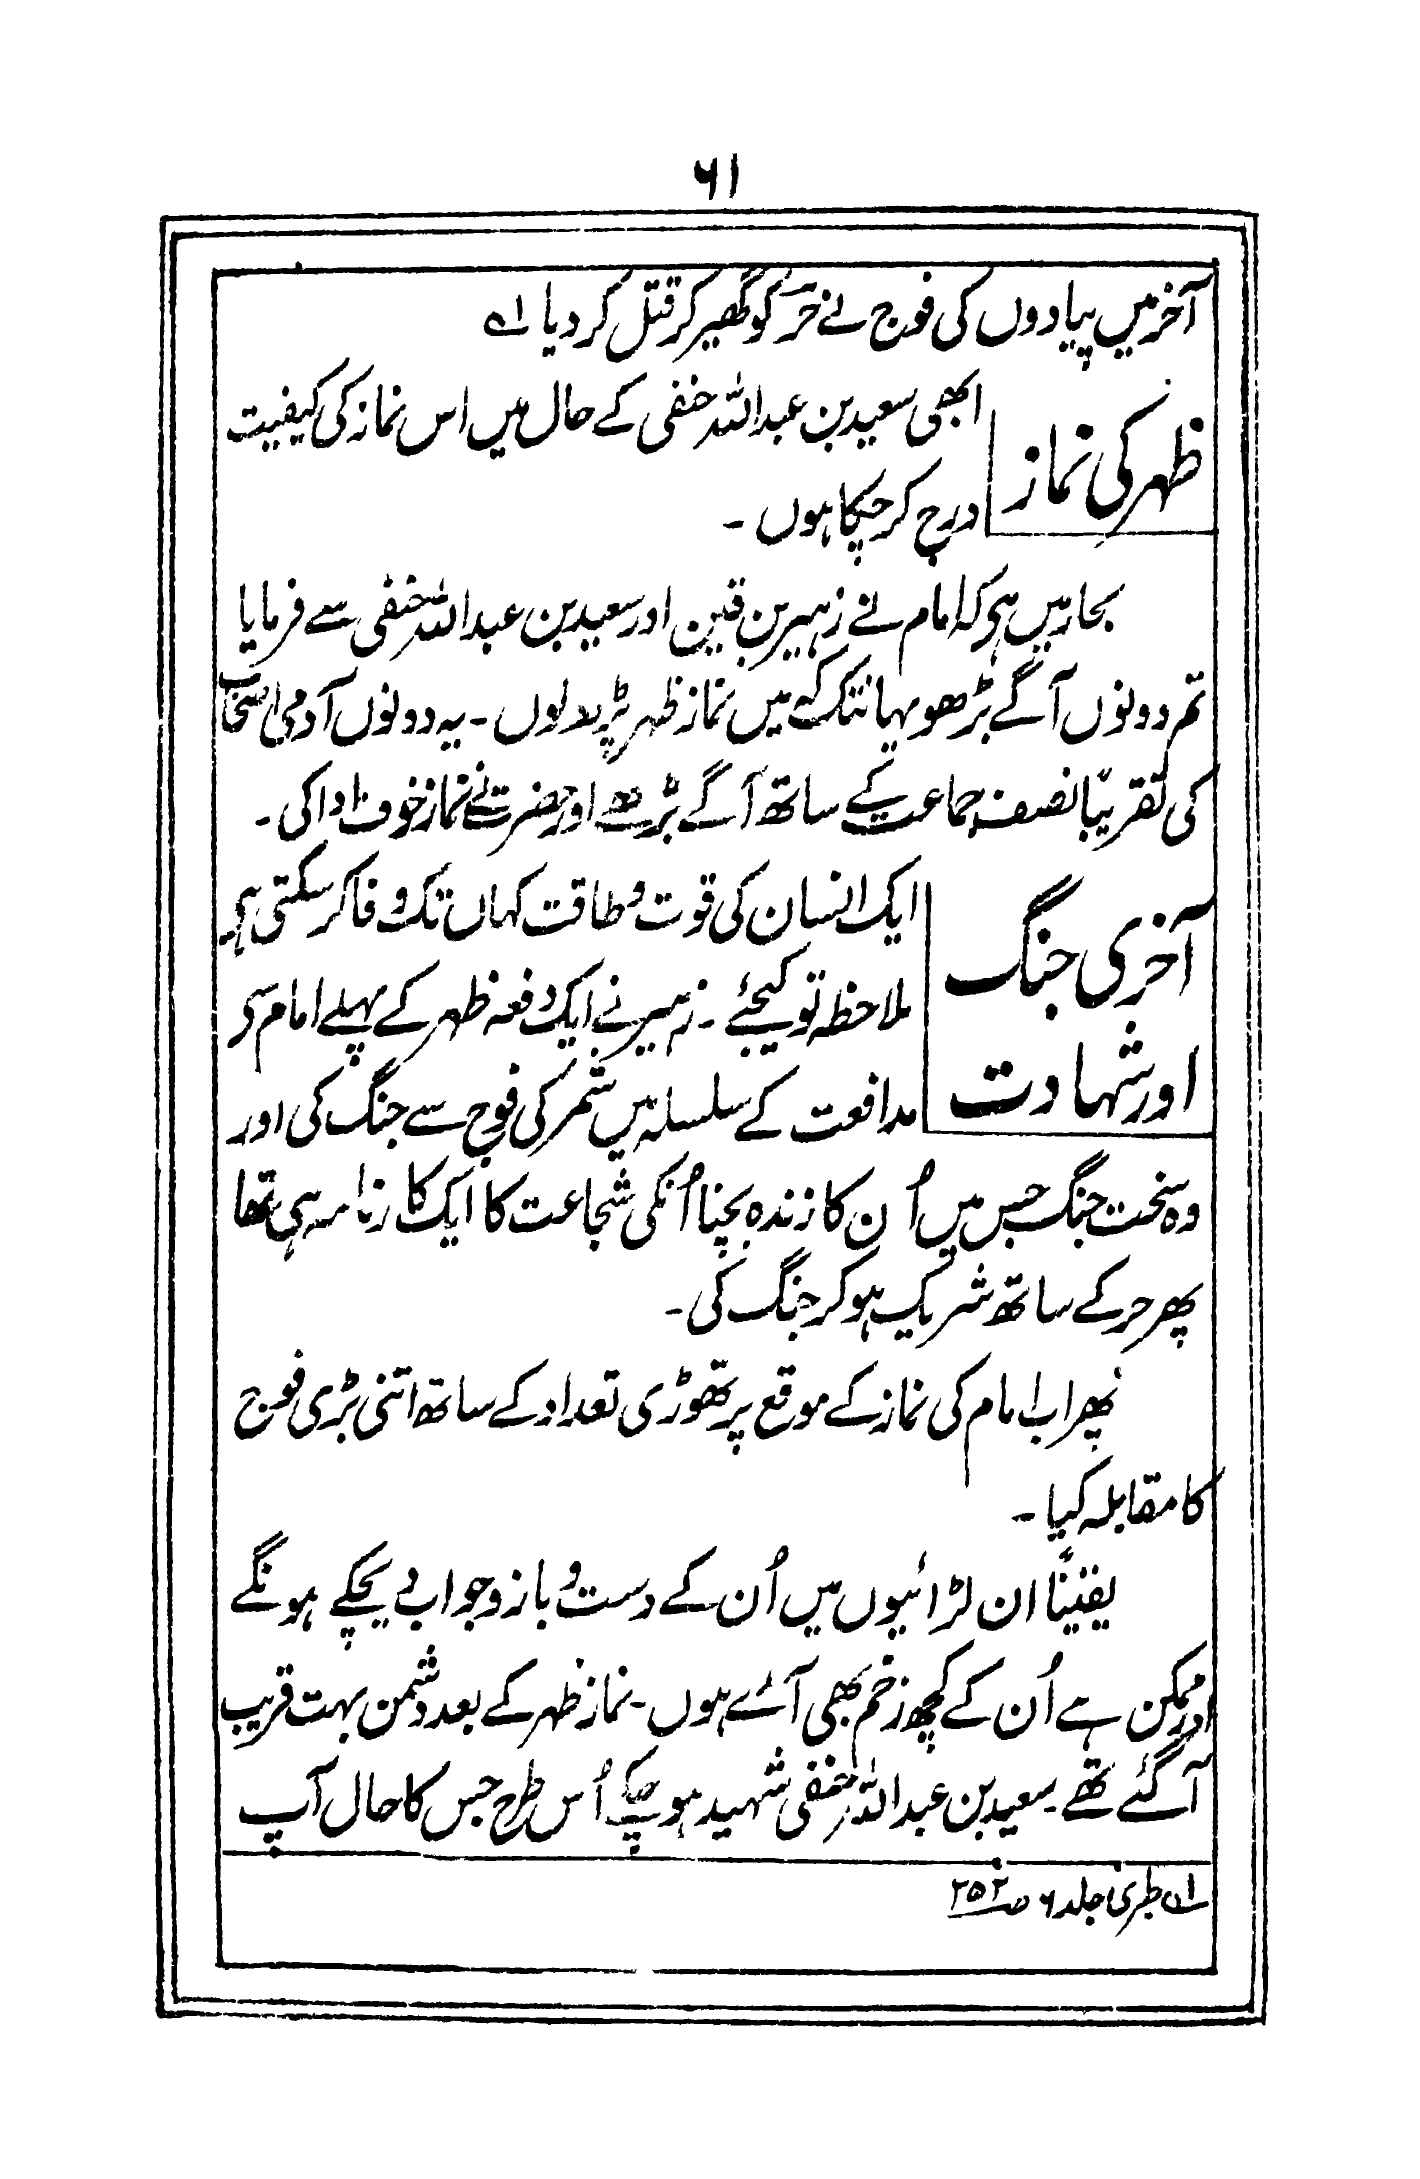 ۶۱
آخر میں پیادوں کی فوج نے حرؓ کو گھیر کر قتل کر دیا ۱ے
ظہر کی نماز
ابھی سعید بن عبداللہ حنفی کے حال میں اس نماز کی کیفیت
درج کر چکا ہوں ۔
بحار میں ہی کہ امام نے زہیر بن قین اور سعید بن عبداللہ حنفی سے فرمایا
تم دونوں آگے بڑھو یہانتک کہ میں نماز ظہر پڑھ لوں ۔ یہ دونوں آدمی اصحاب
کی تقریباً نصف جماعت کے ساتھ آگے بڑھے اور حضرت نے نماز خوف ادا کی ۔
آخری جنگ
اور شہادت
ایک انسان کی قوت و طاقت کہاں تک وفا کر سکتی ہی
ملاحظہ تو کیجئے ۔ زہیر نے ایک دفعہ ظہر کے پہلے امام سی
مدافعت کے سلسلہ میں شمر کی فوج سے جنگ کی اور
وہ سخت جنگ جس میں اُن کا زندہ بچنا اُنکی شجاعت کا ایک کارنامہ ہی تھا
پھر حر کے ساتھ شریک ہو کر جنگ کی ۔
پھر اب امام کی نماز کے موقع پر تھوڑی تعداد کے ساتھ اتنی بڑی فوج
کا مقابلہ کیا ۔
یقیناً ان لڑائیوں میں اُن کے دست و بازو جواب دے چکے ہونگے
اور ممکن ہے اُن کے کچھ زخم بھی آئے ہوں ۔ نماز ظہر کے بعد دشمن بہت قریب
آ گئے تھے ۔ سعید بن عبداللہ حنفی شہید ہو چکے اُس طرح جس کا حال آپ
۱ے طبری جلد ۶ ص ۲۵۲